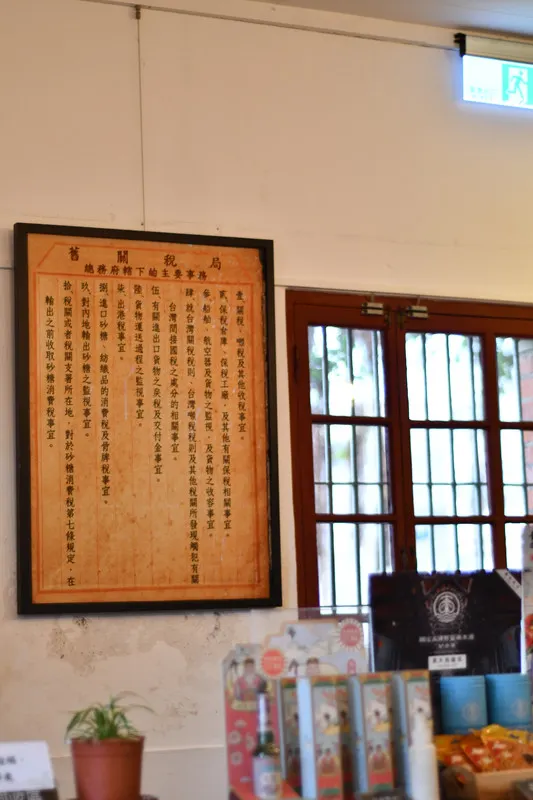 舊關稅局
總務府轄下給主要事務
壹、關稅、噸稅及其他收稅事宜。
貳、保稅倉庫、保稅工廠、及其他有關保稅相關事宜。
參、船舶、航空器及貨物之監視、及貨物之收容事宜。
肆、就台灣關稅稅則、台灣噸稅稅則及其他稅關所發現觸犯有關
台灣間接國稅之處分的相關事宜。
伍、有關進出口貨物之戾稅及交付金事宜。
陸、貨物運送過程之監視事宜。
柒、出港稅事宜。
捌、進口砂糖、紡織品的消費稅及骨牌稅事宜。
玖、對內地輸出砂糖之監視事宜。
拾、稅關或者稅關支署所在地,對於砂糖消費稅第七條規定,在
輸出之前收取砂糖消費稅事宜。